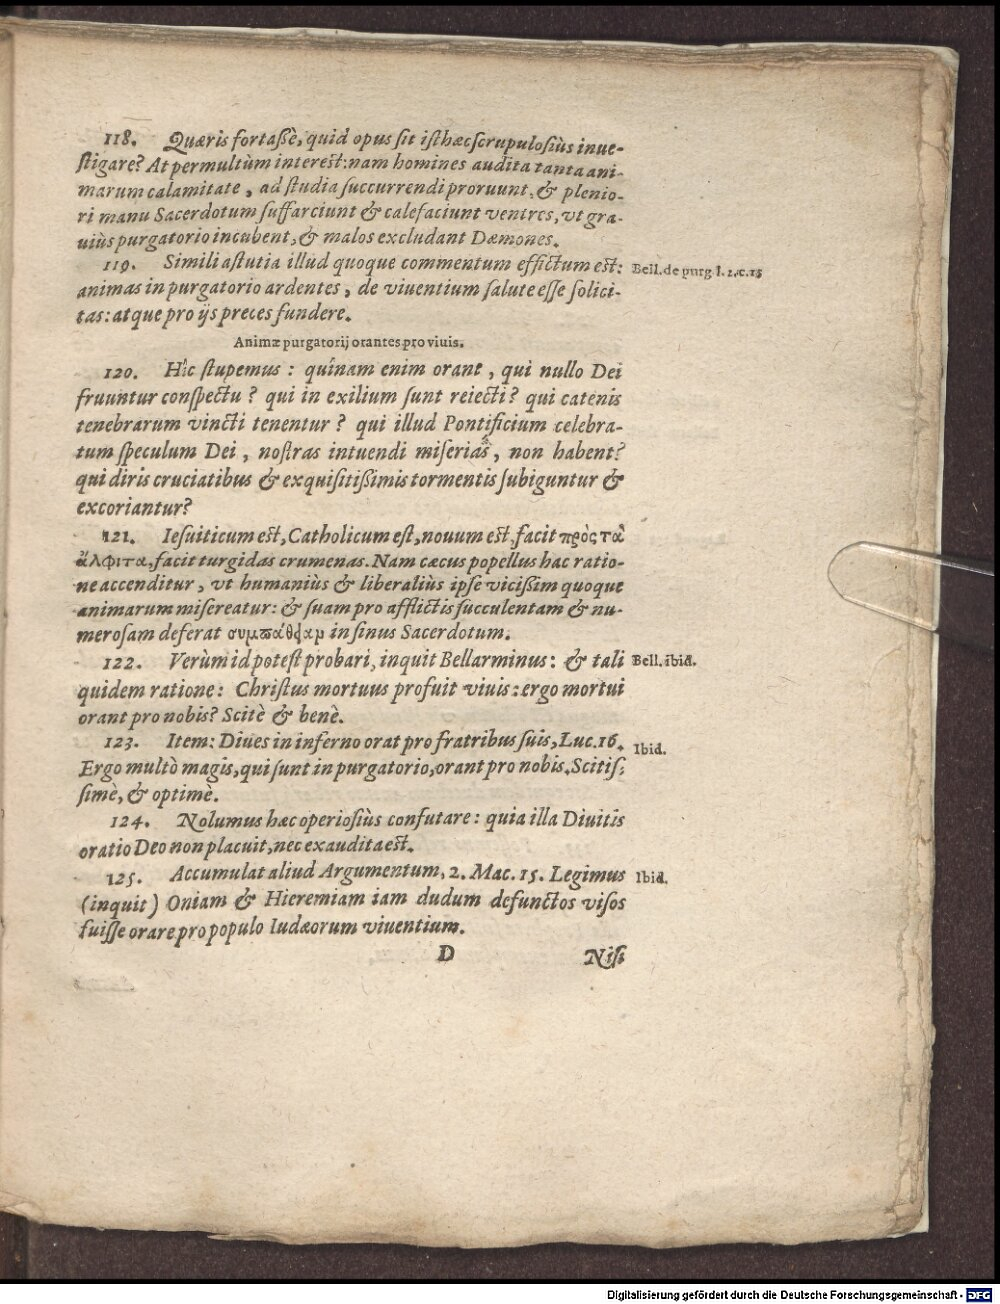 118. Quæris fortaßè, quid opus sit isthæc scrupulosiùs inue-
stigare? At permultùm interest: nam homines audita tanta ani-
marum calamitate, ad studia succurrendi proruunt, & plenio-
ri manu Sacerdotum suffarciunt & calefaciunt ventres, vt gra-
uiùs purgatorio incubent, & malos excludant Dæmones.
119. Simili astutia illud quoque commentum effictum est:
Bell. de purg l. 2. c. 15
animas in purgatorio ardentes, de viuentium salute esse solici-
tas: atque pro ijs preces fundere.
Animæ purgatorij orantes pro viuis.
120. Hîc stupemus: quínam enim orant, qui nullo Dei
fruuntur conspectu? qui in exilium sunt reiecti? qui catenis
tenebrarum vincti tenentur? qui illud Pontificium celebra-
tum speculum Dei, nostras intuendi miserias, non habent?
qui diris cruciatibus & exquisitißimis tormentis subiguntur &
excoriantur?
121. Iesuiticum est, Catholicum est, nouum est, facit πρὸς τὰ
ἄλφιτα, facit turgidas crumenas. Nam cæcus popellus hac ratio-
ne accenditur, vt humaniùs & liberaliùs ipse vicißim quoque
animarum misereatur: & suam pro afflictis succulentam & nu-
merosam deferat in sinus Sacerdotum.
122. Verùm id potest probari, inquit Bellarminus: & tali
Bell. ibid.
quidem ratione: Christus mortuus profuit viuis: ergo mortui
orant pro nobis? Scitè & benè.
123. Item: Diues in inferno orat pro fratribus suis, Luc. 16.
Ibid.
Ergo multò magis, qui sunt in purgatorio, orant pro nobis. Scitis-
simè, & optimè.
124. Nolumus hæc operiosiùs confutare: quia illa Diuitis
oratio Deo non placuit, nec exaudita est.
125. Accumulat aliud Argumentum, 2. Mac. 15. Legimus
Ibid.
(inquit) Oniam & Hieremiam iam dudum defunctos visos
fuisse orare pro populo Iudæorum viuentium.
D
Nisi
Digitalisierung gefördert durch die Deutsche Forschungsgemeinschaft - DFG